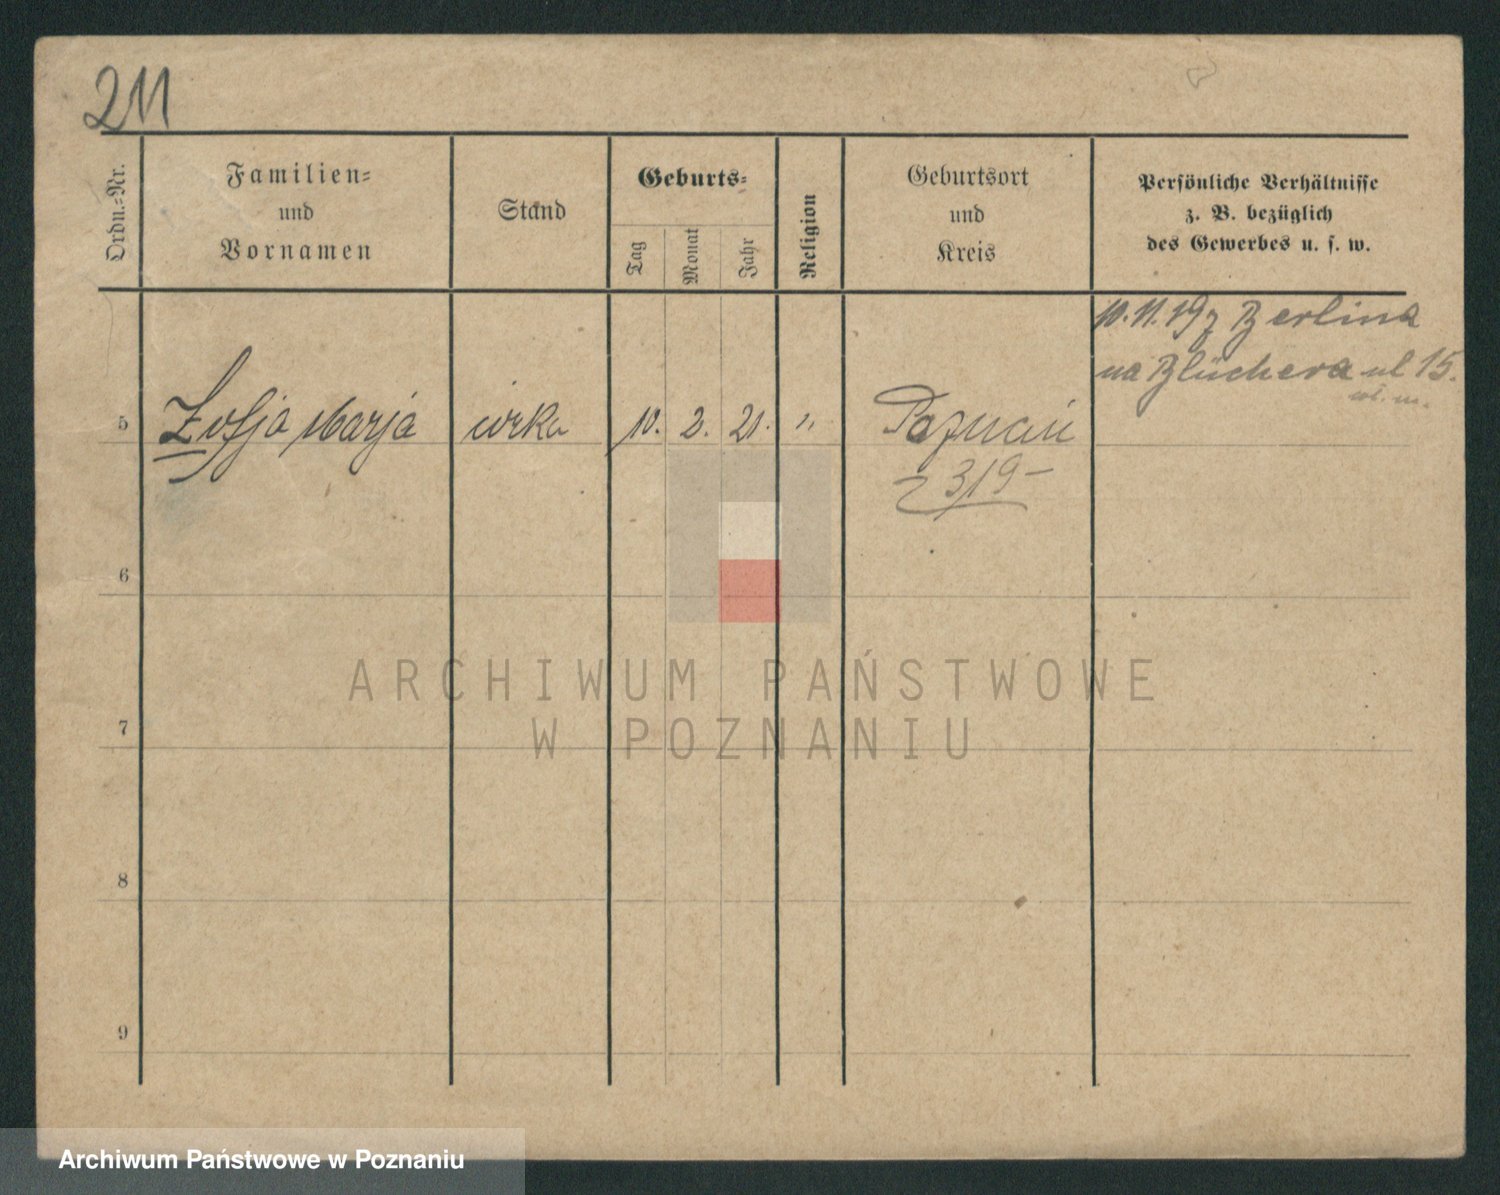 211
Ordn.-Nr.
Familien-
und
Vornamen
Stand
Geburts-
Tag
Monat
Jahr
Religion
Geburtsort
und
Kreis
Persönliche Verhältnisse
z. B. bezüglich
des Gewerbes u. s. w.
10.11.19 z Berlina
na Blüchera ul 15.
5 Zofja Marja córka 10. 2. 21. " Poznań
319-
6
ARCHIWUM PAŃSTWOWE
W POZNANIU
7
8
9
Archiwum Państwowe w Poznaniu